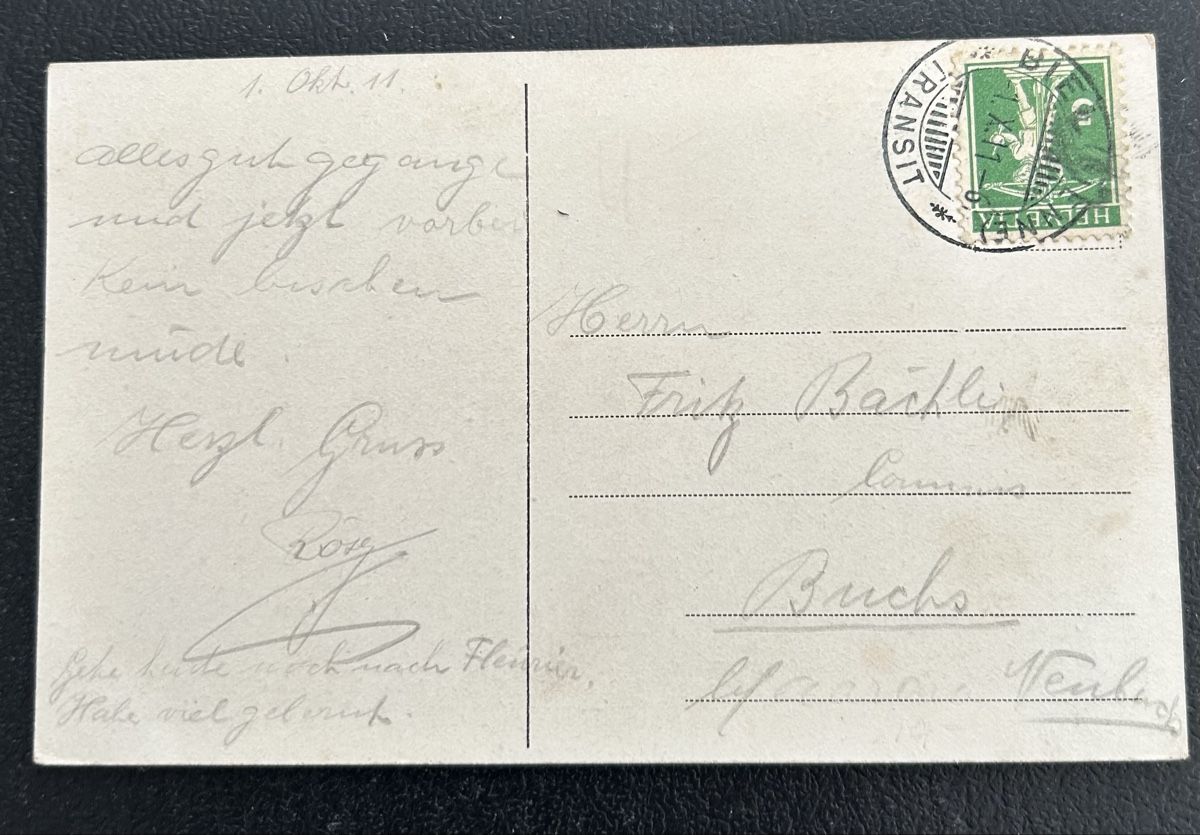 1. Okt. 11.
alles gut gegange
und jetzt vorbei
Kein bischen
müde.
Herzl. Gruss
Rösy
Gehe heute noch nach Fleurier,
Habe viel gelernt.
BIEL (BIENNE)
TRANSIT
-1.X.11-6
HELVETIA
5
Herrn
Fritz Bächli
Commis
Buchs